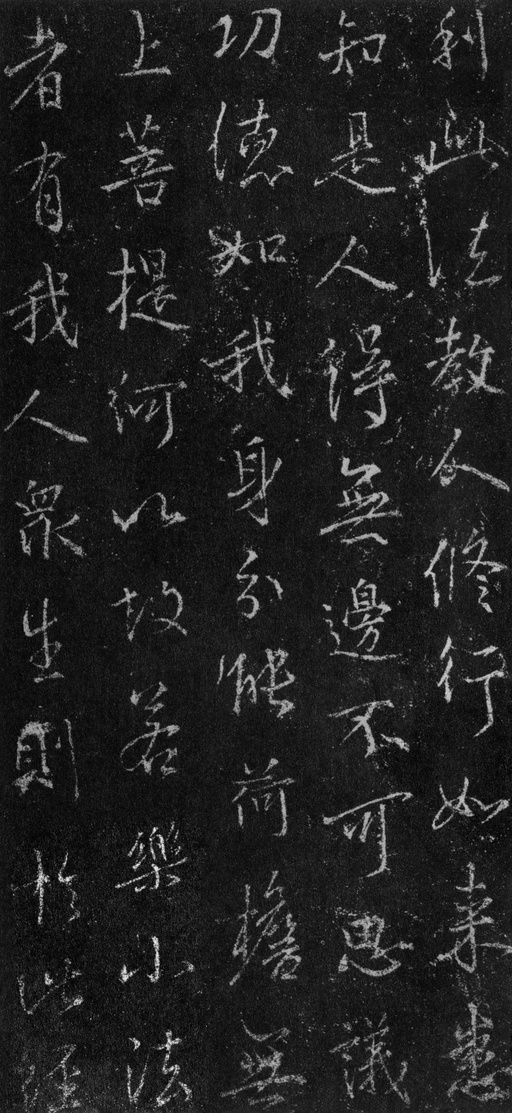 利此法教令修行如来悉
知是人得無邊不可思議
功德如我身分能荷擔無
上菩提何以故若樂小法
者有我人衆生則於此經